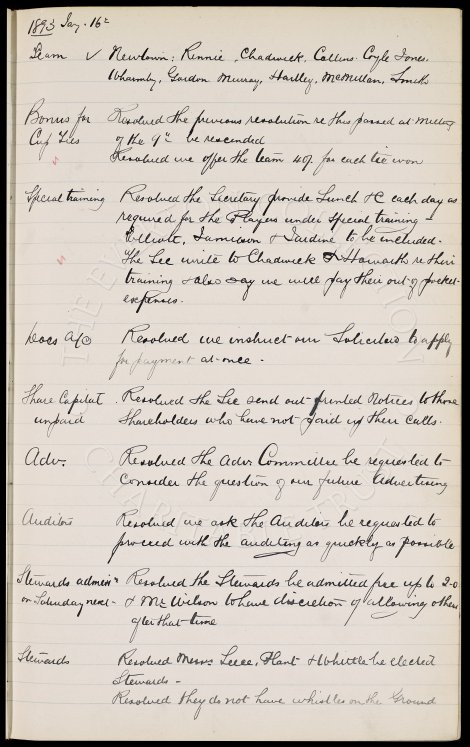 1893 Jany. 16th
Team ✓ Newtown: Rennie, Chadwick, Collins. Coyle Jones.
Wharmby, Gordon Murray, Hartley, McMillan, Smith
Bonus for Resolved the previous resolution re this passed at Meeting
Cup Ties of the 9th be rescinded
Resolved we offer the team 40/- for each tie won
Special training Resolved the Secretary provide Lunch &c each day as
required for the Players under special training -
Elliott, Jamieson & Jardine to be included.
The Sec write to Chadwick & Howarth re their
training & also say we will pay their out of pocket
expenses.
Docs a/c Resolved we instruct our Solicitors to apply
for payment at once.
Share Capital Resolved the Sec send out printed notices to those
unpaid Shareholders who have not paid up their Calls.
Adv. Resolved the Adv. Committee be requested to
consider the question of our future Advertising
Auditors Resolved we ask the Auditors be requested to
proceed with the auditing as quickly as possible
Stewards admisn Resolved the Stewards be admitted free up to 2-0
on Saturday next - & Mr. Wilson to have discretion of allowing others
after that time
Stewards Resolved Messrs Leece, Plant & Whittle be elected
Stewards -
Resolved they do not have whistles on the Ground
THE EVERTON COLLECTION
CHARITABLE TRUST